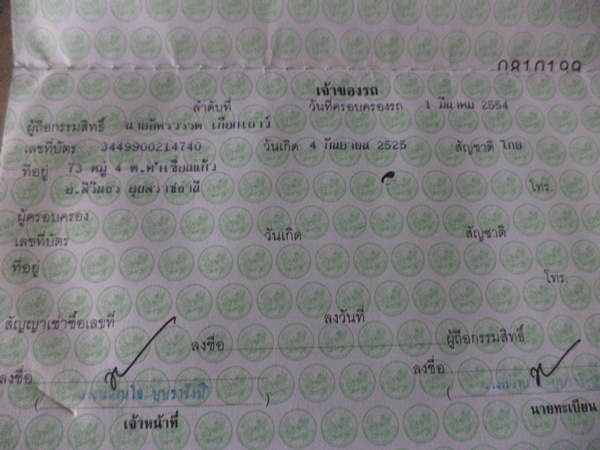 0810199
เจ้าของรถ
ลำดับที่ วันที่ครอบครองรถ 1 มีนาคม 2554
ผู้ถือกรรมสิทธิ์
เลขที่บัตร 3449900214740 วันเกิด 4 กันยายน 2525 สัญชาติ ไทย
ที่อยู่ 73 หมู่ 4 ต.คำเขื่อนแก้ว
อ.สิรินธร อุบลราชธานี โทร.
ผู้ครอบครอง
เลขที่บัตร วันเกิด สัญชาติ
ที่อยู่
โทร.
สัญญาเช่าซื้อเลขที่ ลงวันที่
ลงชื่อ ผู้ถือกรรมสิทธิ์
ลงชื่อ ลงชื่อ
( ) ( )
เจ้าหน้าที่ นายทะเบียน